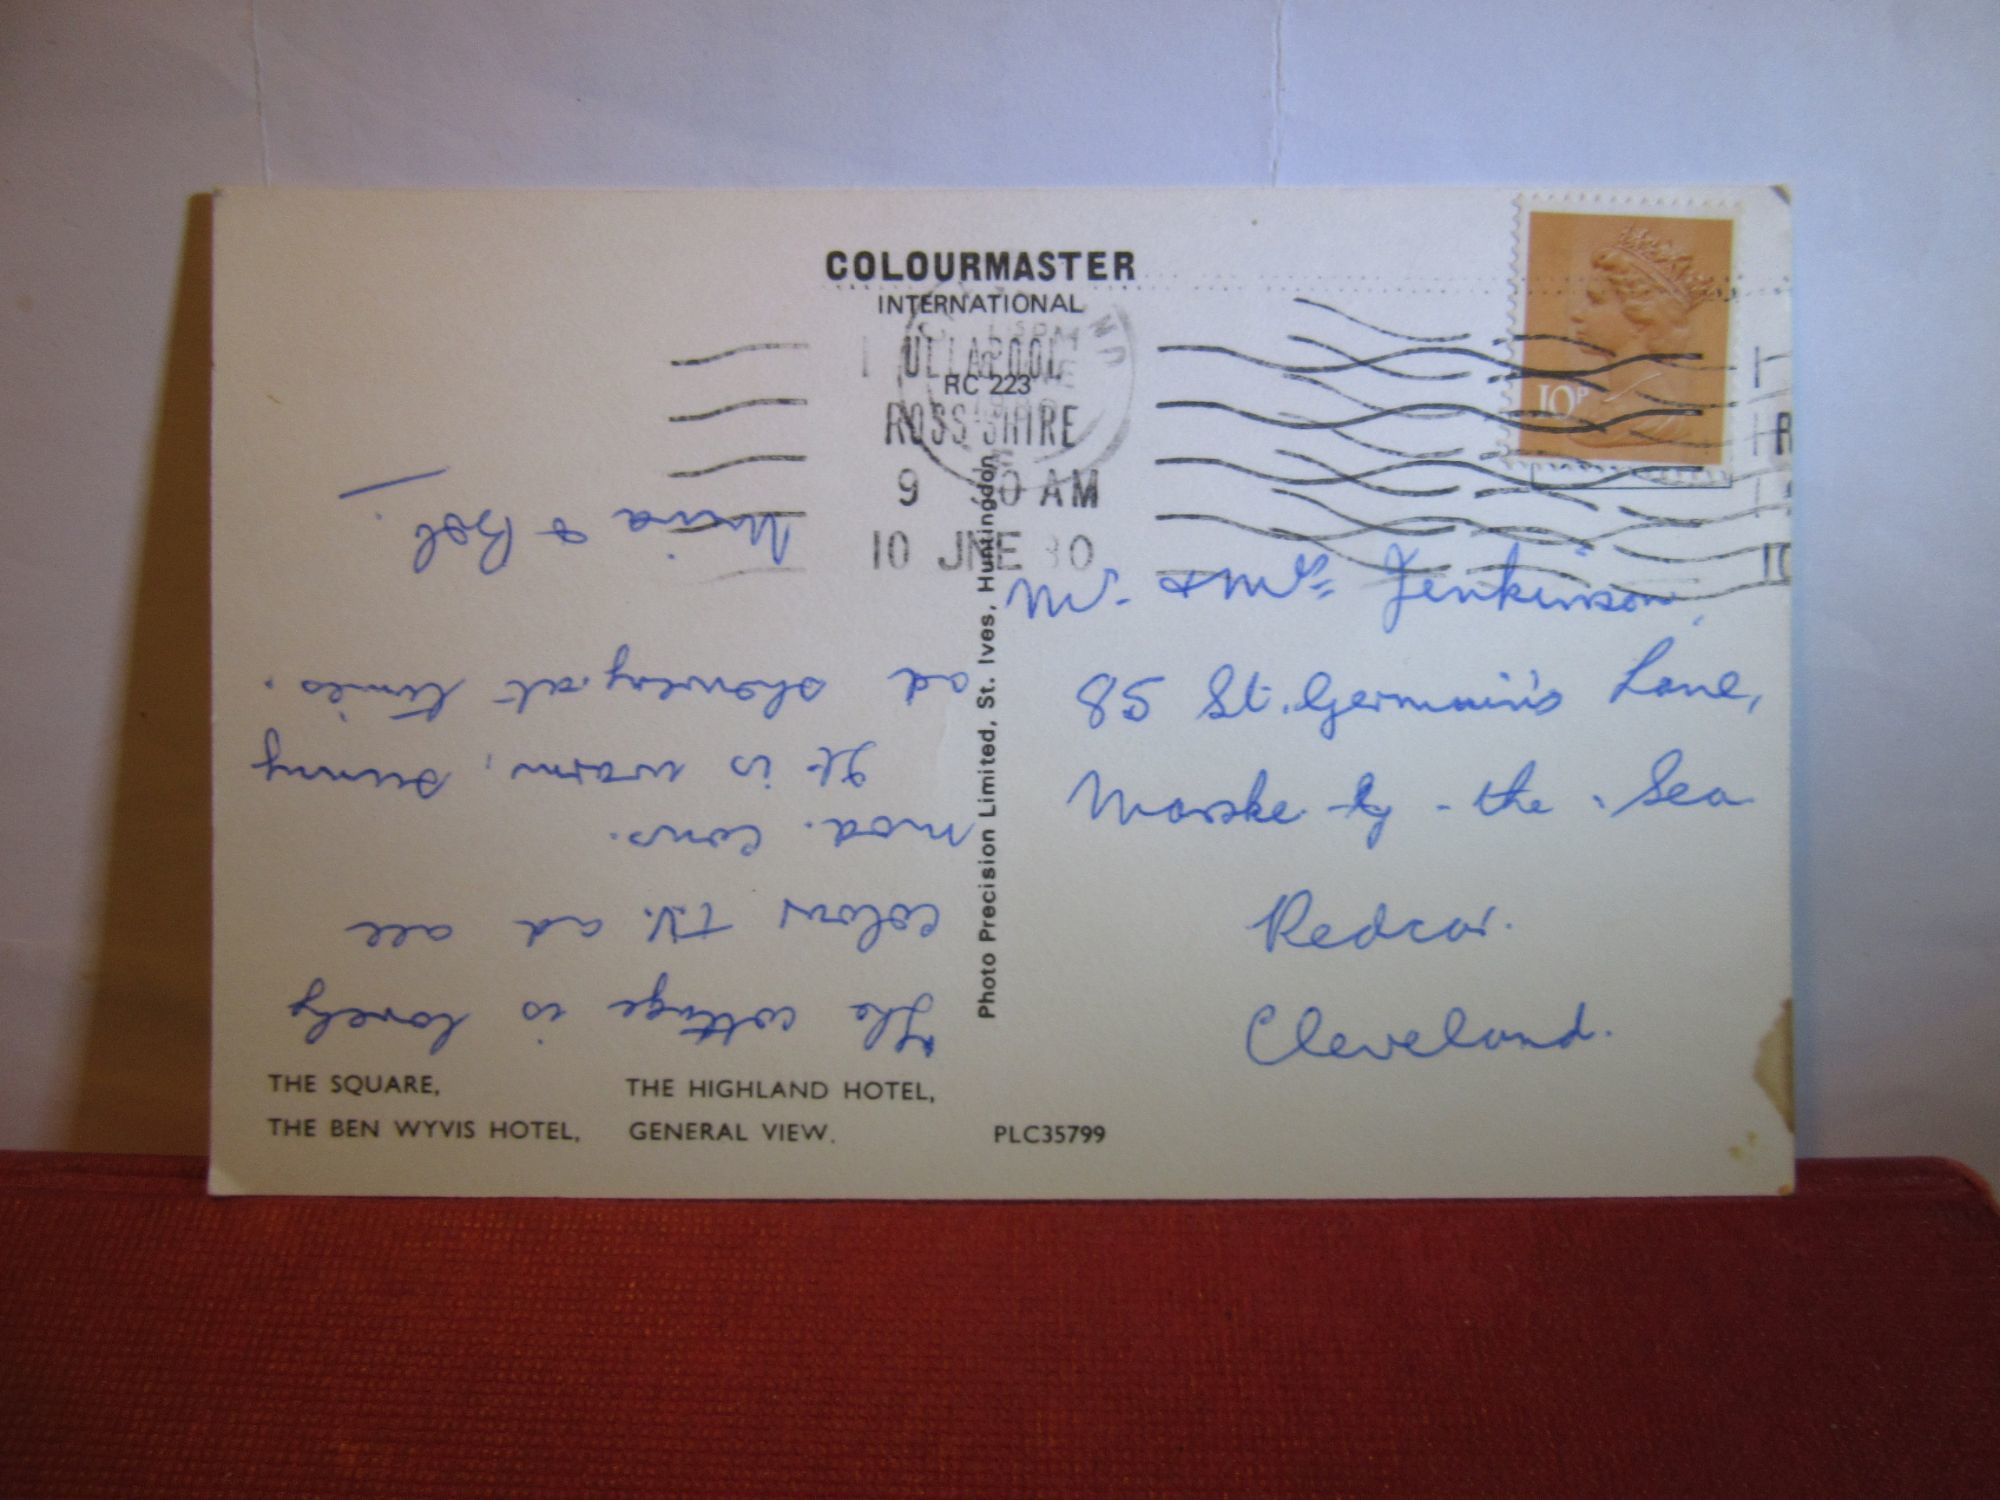 COLOURMASTER
INTERNATIONAL
RC 223
ULLAPOOL
ROSS-SHIRE
9 30 AM
10 JNE 80
10P
Photo Precision Limited, St. Ives, Huntingdon
The cottage is lovely
Colour T.V. ad all
mod. cons.
It is warm, sunny
ad showery at times.
Moira & Bob.
Mr. & Mrs Jenkinson,
85 St. Germain's Lane,
Marske-by-the-Sea
Redcar.
Cleveland.
THE SQUARE, THE HIGHLAND HOTEL,
THE BEN WYVIS HOTEL, GENERAL VIEW.
PLC35799